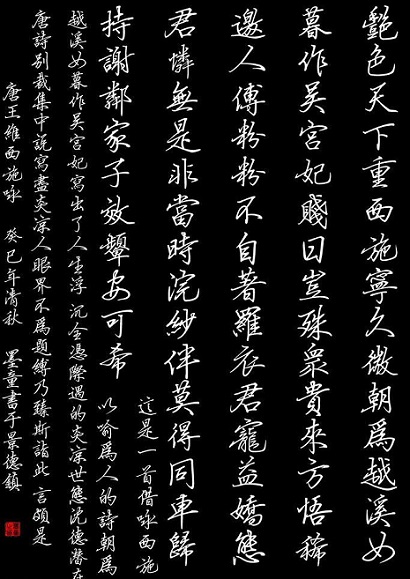 艷色天下重西施寧久微朝爲越溪女
暮作吳宮妃賤日豈殊衆貴來方悟稀
邀人傅粉粉不自著羅衣君寵益嬌態
君憐無是非當時浣紗伴莫得同車歸
持謝鄰家子效顰安可希
這是一首借咏西施
以喻爲人的詩朝爲
越溪女暮作吳宮妃寫出了人生浮沉全憑際遇的炎凉世態沈德潛在
唐詩別裁集中說寫盡炎凉人眼界不爲題縛乃臻斯詣此言頗是
唐王維西施咏 癸巳年清秋 墨童書于景德鎮